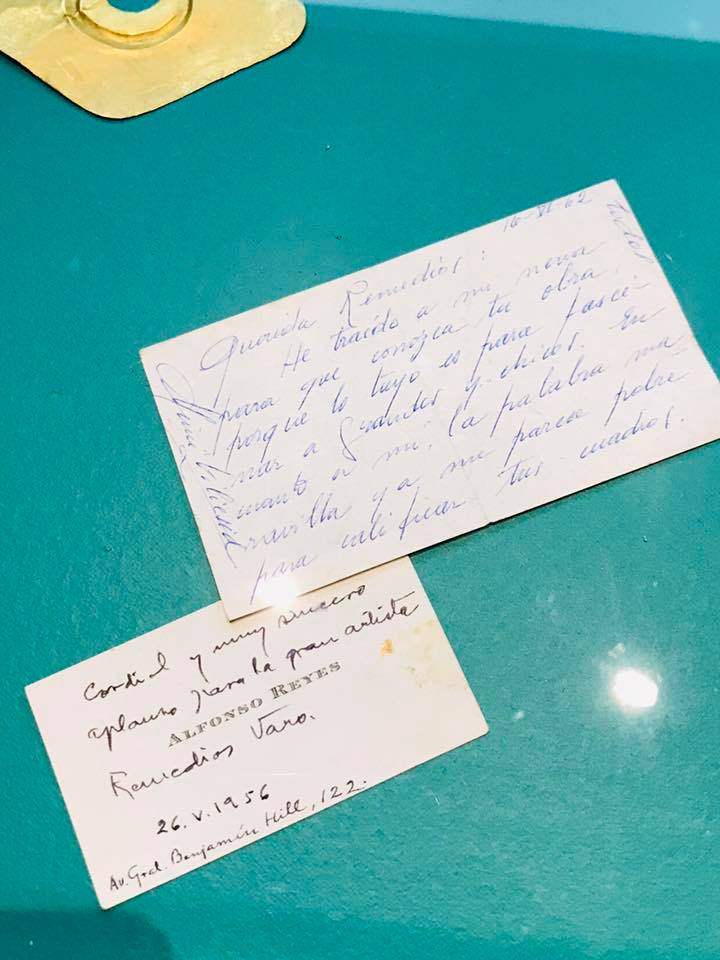 16-VI-62
Querida Remedios:
He traído a mi nena
para que conozca tu obra,
porque lo tuyo es para fasci-
nar a grandes y chicos. En
cuanto a mí, la palabra ma-
ravilla ya me parece pobre
para calificar tus cuadros.
Cordial y muy sincero
aplauso para la gran artista
ALFONSO REYES
Remedios Varo.
26.V.1956
Av. Gral. Benjamín Hill, 122.